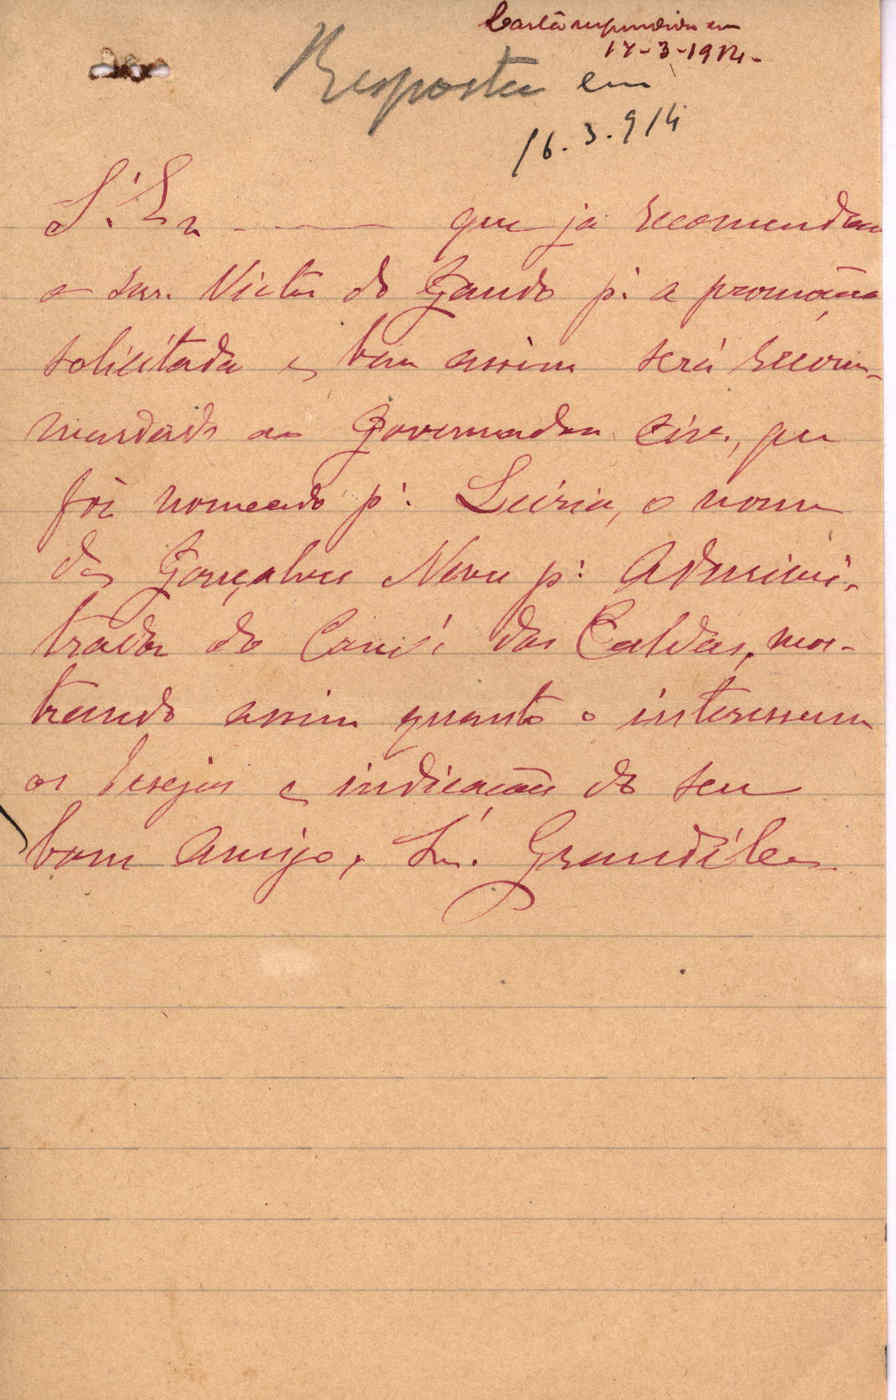 Cartão respondido em
17-3-1914-
Resposta em
16.3.914
S. Ex ------ que já recomendou
o snr. Victor do pª a promoção
solicitada e bem assim será recom-
mendado ao Governador Civ., que
foi nomeado pª Leiria, o nome
do Gonçalves Neves pª Adminis-
trador do Consº das Caldas, mos-
trando assim quanto o interessam
os desejos e indicação do seu
bom amigo, Sr. Grandella